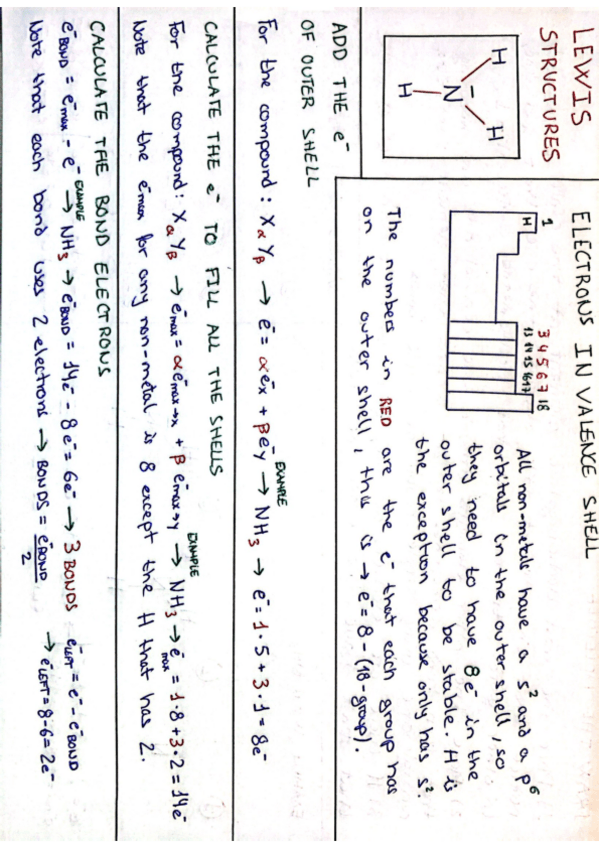 LEWIS
STRUCTURES
H
H
N
H
ELECTRONS IN VALENCE SHELL
1
H
3 4 5 6 7 18
13 14 15 16 17
All non-metals have a s² and a p⁶
orbitals in the outer shell, so
they need to have 8e⁻ in the
outer shell to be stable. H is
the exception because only has s².
The numbers in RED are the e⁻ that each group has
on the outer shell, this is → e⁻ = 8 - (18 - group).
ADD THE e⁻
OF OUTER SHELL
For the compound: XαYβ → e⁻ = αe⁻x + βe⁻y EXAMPLE → NH₃ → e⁻ = 1·5 + 3·1 = 8e⁻
CALCULATE THE e⁻ TO FILL ALL THE SHELLS
For the compound: XαYβ → e⁻max = αe⁻max→x + βe⁻max→y EXAMPLE → NH₃ → e⁻max = 1·8 + 3·2 = 14e⁻
Note that the e⁻max for any non-metal is 8 except the H that has 2.
CALCULATE THE BOND ELECTRONS
e⁻BOND = e⁻max - e⁻ EXAMPLE → NH₃ → e⁻BOND = 14e⁻ - 8e⁻ = 6e⁻ → 3 BONDS e⁻LEFT = e⁻ - e⁻BOND
Note that each bond uses 2 electrons → BONDS = e⁻BOND / 2 → e⁻LEFT = 8 - 6 = 2e⁻